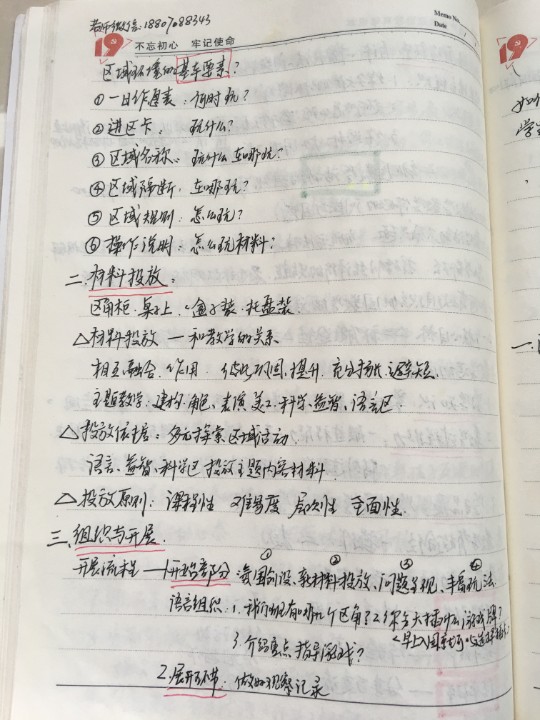 老师微信:18807088343
Memo No.
Date
19 不忘初心 牢记使命
区域环境的基本要素?
①一日作息表:何时玩?
②进区卡: 玩什么?
③区域名称: 玩什么 在哪玩?
④区域隔断: 在哪玩?
⑤区域规则: 怎么玩?
⑥操作说明: 怎么玩材料?
二、材料投放:
区角柜·桌子上、盒子装·托盘装
△材料投放 — 和教学的关系
相互融合 作用 彼此巩固、提升
主题教学、建构、角色、表演、美工、科学、益智、语言区.
△投放依据: 多元探索区域活动.
语言、益智、科学区 投放主题内容材料.
△投放原则: 课程性 难易度 层次性 全面性.
三、组织与开展.
开展流程 — 1.开始部分 ①氛围创设、②材料投放、③问题呈现、④丰富玩法.
语言组织: 1. 我们班有哪几个区角?2.
3. 介绍重点 指导游戏?
2. 展开环节: 做好观察记录